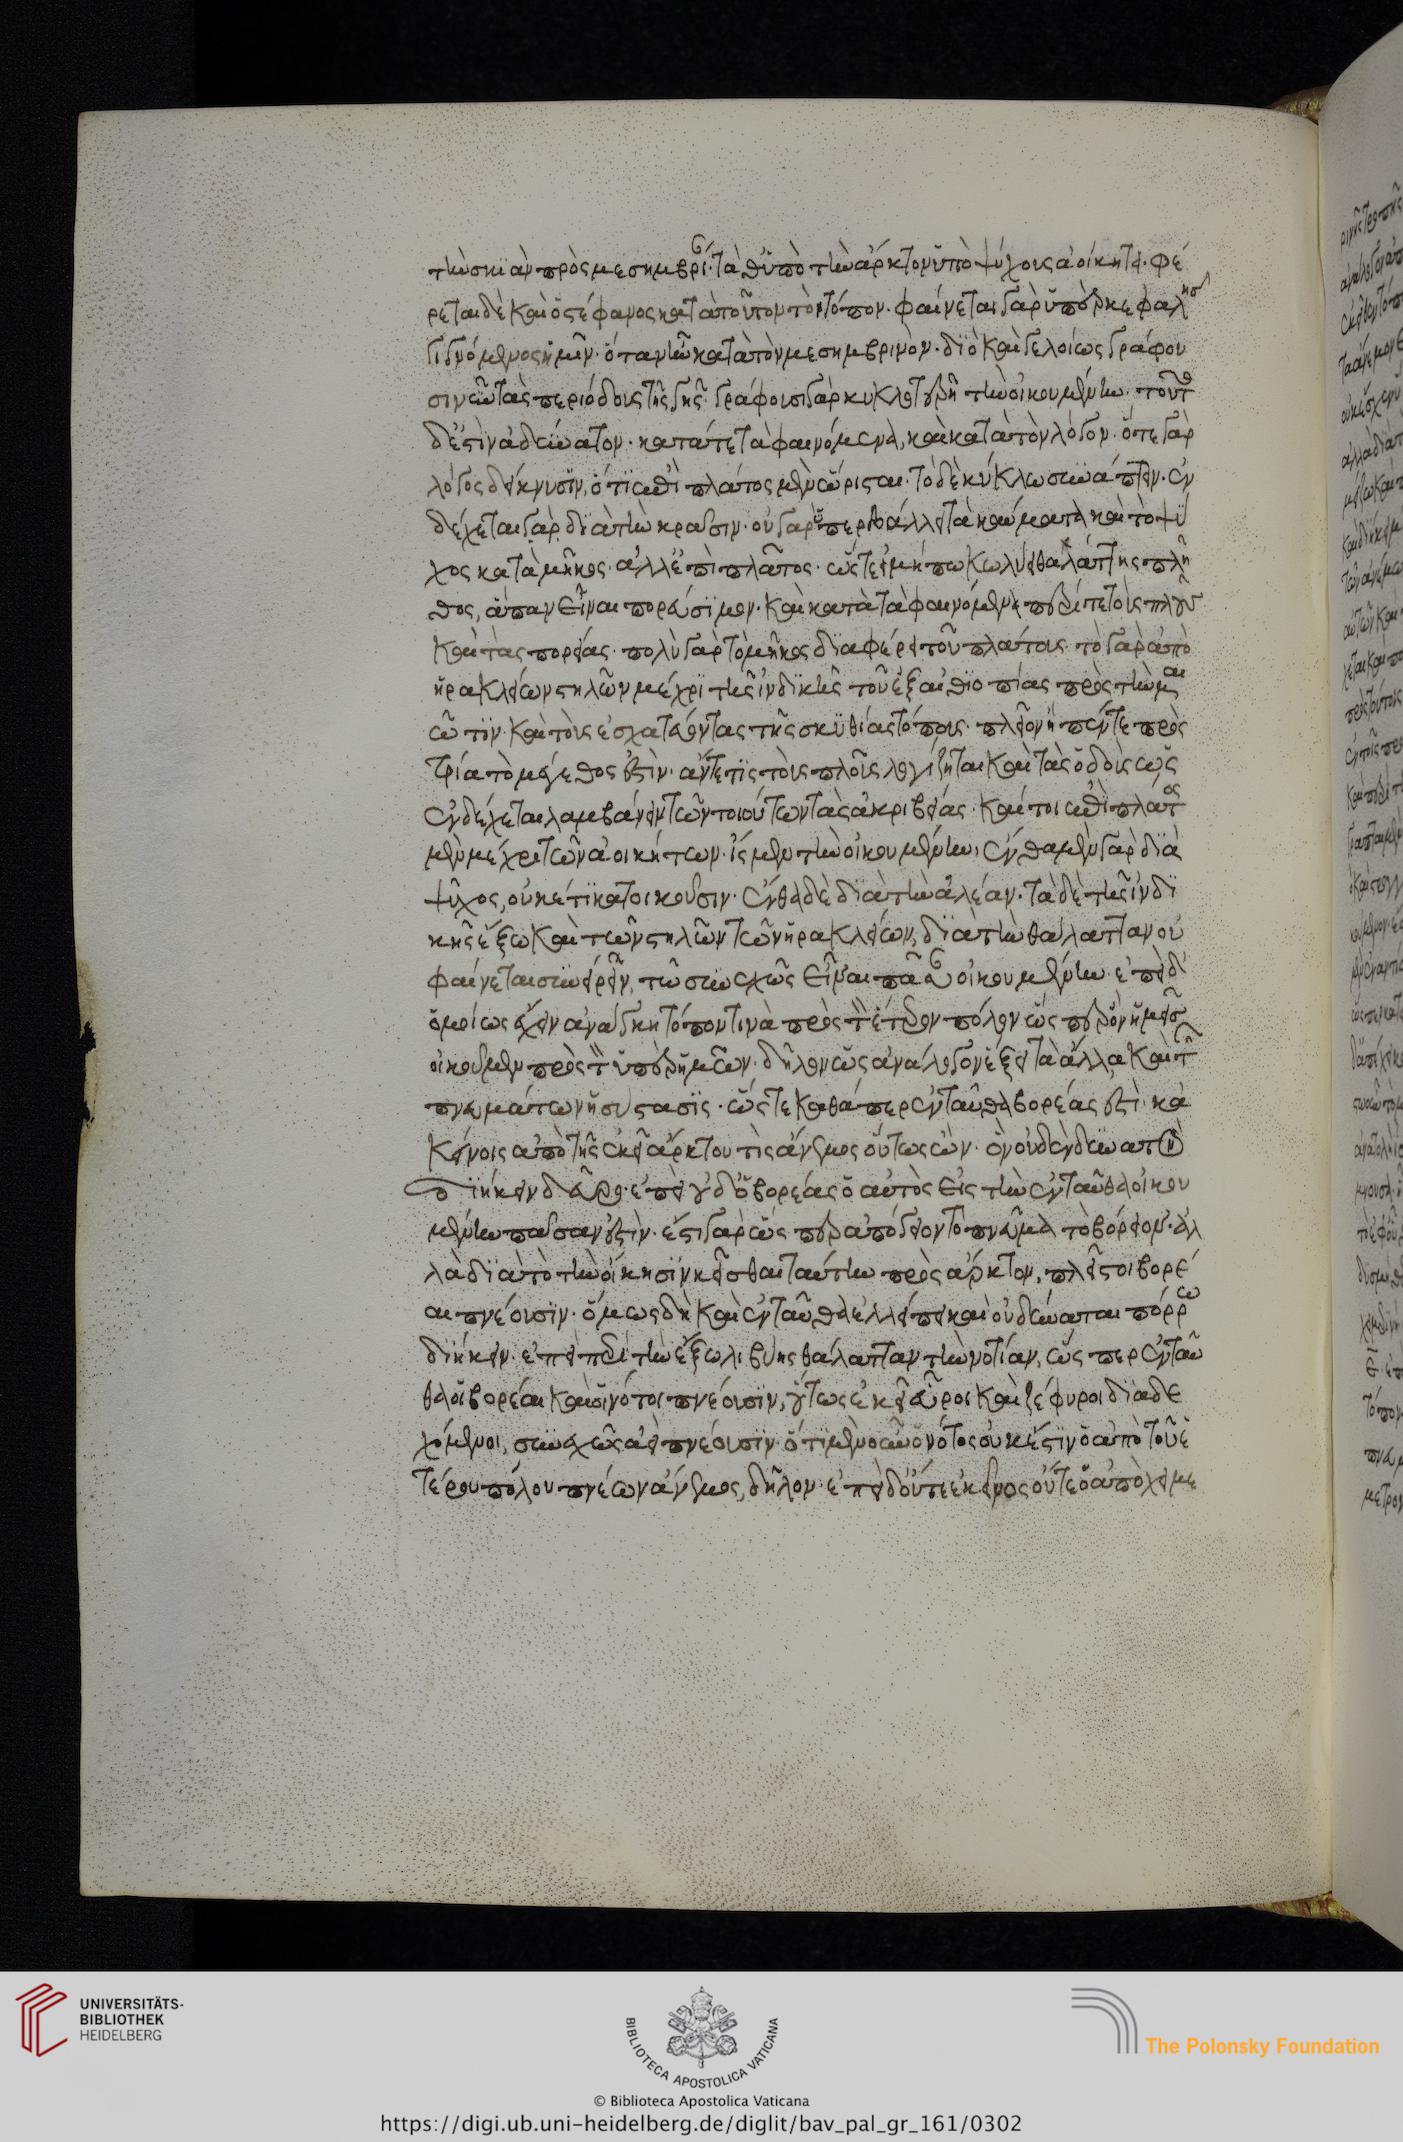 τὴν σκιὰν πρὸς μεσημβρίαν· τὰ δ' ὑπὸ τὴν ἄρκτον ὑπὸ ψύχους ἀοίκητα· φέ
ρεται δὲ καὶ ὁ στέφανος κατὰ τοῦτον τὸν τόπον· φαίνεται γὰρ ὑπὲρ κεφαλῆς
γιγνόμενος ἡμῖν· ὅταν ἦ κατὰ τὸν μεσημβρινὸν· διὸ καὶ γελοίως γράφου
σι νῦν τὰς περιόδους τῆς γῆς· γράφουσι γὰρ κυκλοτερῆ τὴν οἰκουμένην· τοῦτο
δ' ἐστὶν ἀδύνατον· κατά τε τὰ φαινόμενα, καὶ κατὰ τὸν λόγον· ὅ τε γὰρ
λόγος δείκνυσιν, ὅτι ἐπὶ πλάτος μὲν ὥρισται· τὸ δὲ κύκλω συνάπτειν· ἐν
δέχεται γὰρ διὰ τὴν κρᾶσιν· οὐ γὰρ ὑπερβάλλει τὰ καύματα καὶ τὸ ψύ
χος κατὰ μῆκος· ἀλλ' ἐπὶ πλάτος· ὥστ' εἰ μή που κωλύει θαλάττης πλῆ
θος, ἅπαν εἶναι πορεύσιμον· καὶ κατὰ τὰ φαινόμενα περί τε τοὺς πλοῦς
καὶ τὰς πορείας· πολὺ γὰρ τὸ μῆκος διαφέρει τοῦ πλάτους· τὸ γὰρ ἀπὸ
ἡρακλείων στηλῶν μέχρι τῆς ἰνδικῆς τοῦ ἐξ αἰθιοπίας πρὸς τὴν μαι
ῶτιν· καὶ τοὺς ἐσχατεύοντας τῆς σκυθίας τόπους· πλεῖον ἢ πέντε πρὸς
τρία τὸ μέγεθος ἐστὶν· ἄν τέ τις τοὺς πλοῦς λογίζηται καὶ τὰς ὁδοὺς ὡς
ἐνδέχεται λαμβάνειν τῶν τοιούτων τὰς ἀκριβείας· καί τοι ἐπὶ πλάτος
μὲν μέχρι τῶν ἀοικήτων· ἴσμεν τὴν οἰκουμένην, ἔνθα μὲν γὰρ διὰ
ψῦχος, οὐκέτι κατοικοῦσιν· ἔνθα δὲ διὰ τὴν ἀλέαν· τὰ δὲ τῆς ἰνδι
κῆς ἔξω καὶ τῶν στηλῶν τῶν ἡρακλείων, διὰ τὴν θάλατταν οὐ
φαίνεται συνείρειν, τῶ συνεχῶς εἶναι πᾶσαν οἰκουμένην· ἐπεὶ δ'
ὁμοίως ἔχειν ἀνάγκη τόπον τινὰ πρὸς τὸν ἕτερον πόλον ὥσπερ ὃν ἡμεῖς
οἰκοῦμεν πρὸς τὸν ὑπὲρ ἡμῶν· δῆλον ὡς ἀνάλογον ἕξει τὰ ἄλλα καὶ τῶν
πνευμάτων ἡ στάσις· ὥστε καθάπερ ἐνταῦθα βορέας ἐστὶ· κἀ
κείνοις ἀπὸ τῆς ἐκεῖ ἄρκτου τὶς ἄνεμος οὕτως ὢν· ὃν οὐδὲν δυνατὸν
διήκειν δεῦρο· ἐπεὶ γ' δ' ὁ βορέας ὁ αὐτὸς εἰς τὴν ἐνταῦθα οἰκου
μένην πᾶσαν ἐστὶν· ἔστι γὰρ ὥσπερ ἀπόγειον τὸ πνεῦμα τὸ βόρειον· ἀλ
λὰ διὰ τὸ τὴν οἴκησιν κεῖσθαι ταύτην πρὸς ἄρκτον, πλεῖστοι βορέ
αι πνέουσιν· ὅμως δὴ καὶ ἐνταῦθα ἐλλείπει καὶ οὐ δύναται πόρρω
διήκειν· ἐπεὶ περὶ τὴν ἔξω λιβύης θάλατταν τὴν νοτίαν, ὥσπερ ἐνταῦ
θα οἱ βορέαι καὶ οἱ νότοι πνέουσιν, οὕτως ἐκεῖ εὖροι καὶ ζέφυροι διαδε
χόμενοι, συνεχῶς αἰεὶ πνέουσιν· ὅτι μὲν οὖν ὁ νότος οὐκ ἔστιν ὁ ἀπὸ τοῦ ἑ
τέρου πόλου πνέων ἄνεμος, δῆλον· ἐπεὶ δ' οὔτε ἐκεῖνος οὔτε ὁ ἀπὸ χειμε
UNIVERSITÄTS-
BIBLIOTHEK
HEIDELBERG
BIBLIOTECA APOSTOLICA VATICANA
© Biblioteca Apostolica Vaticana
The Polonsky Foundation
https://digi.ub.uni-heidelberg.de/diglit/bav_pal_gr_161/0302